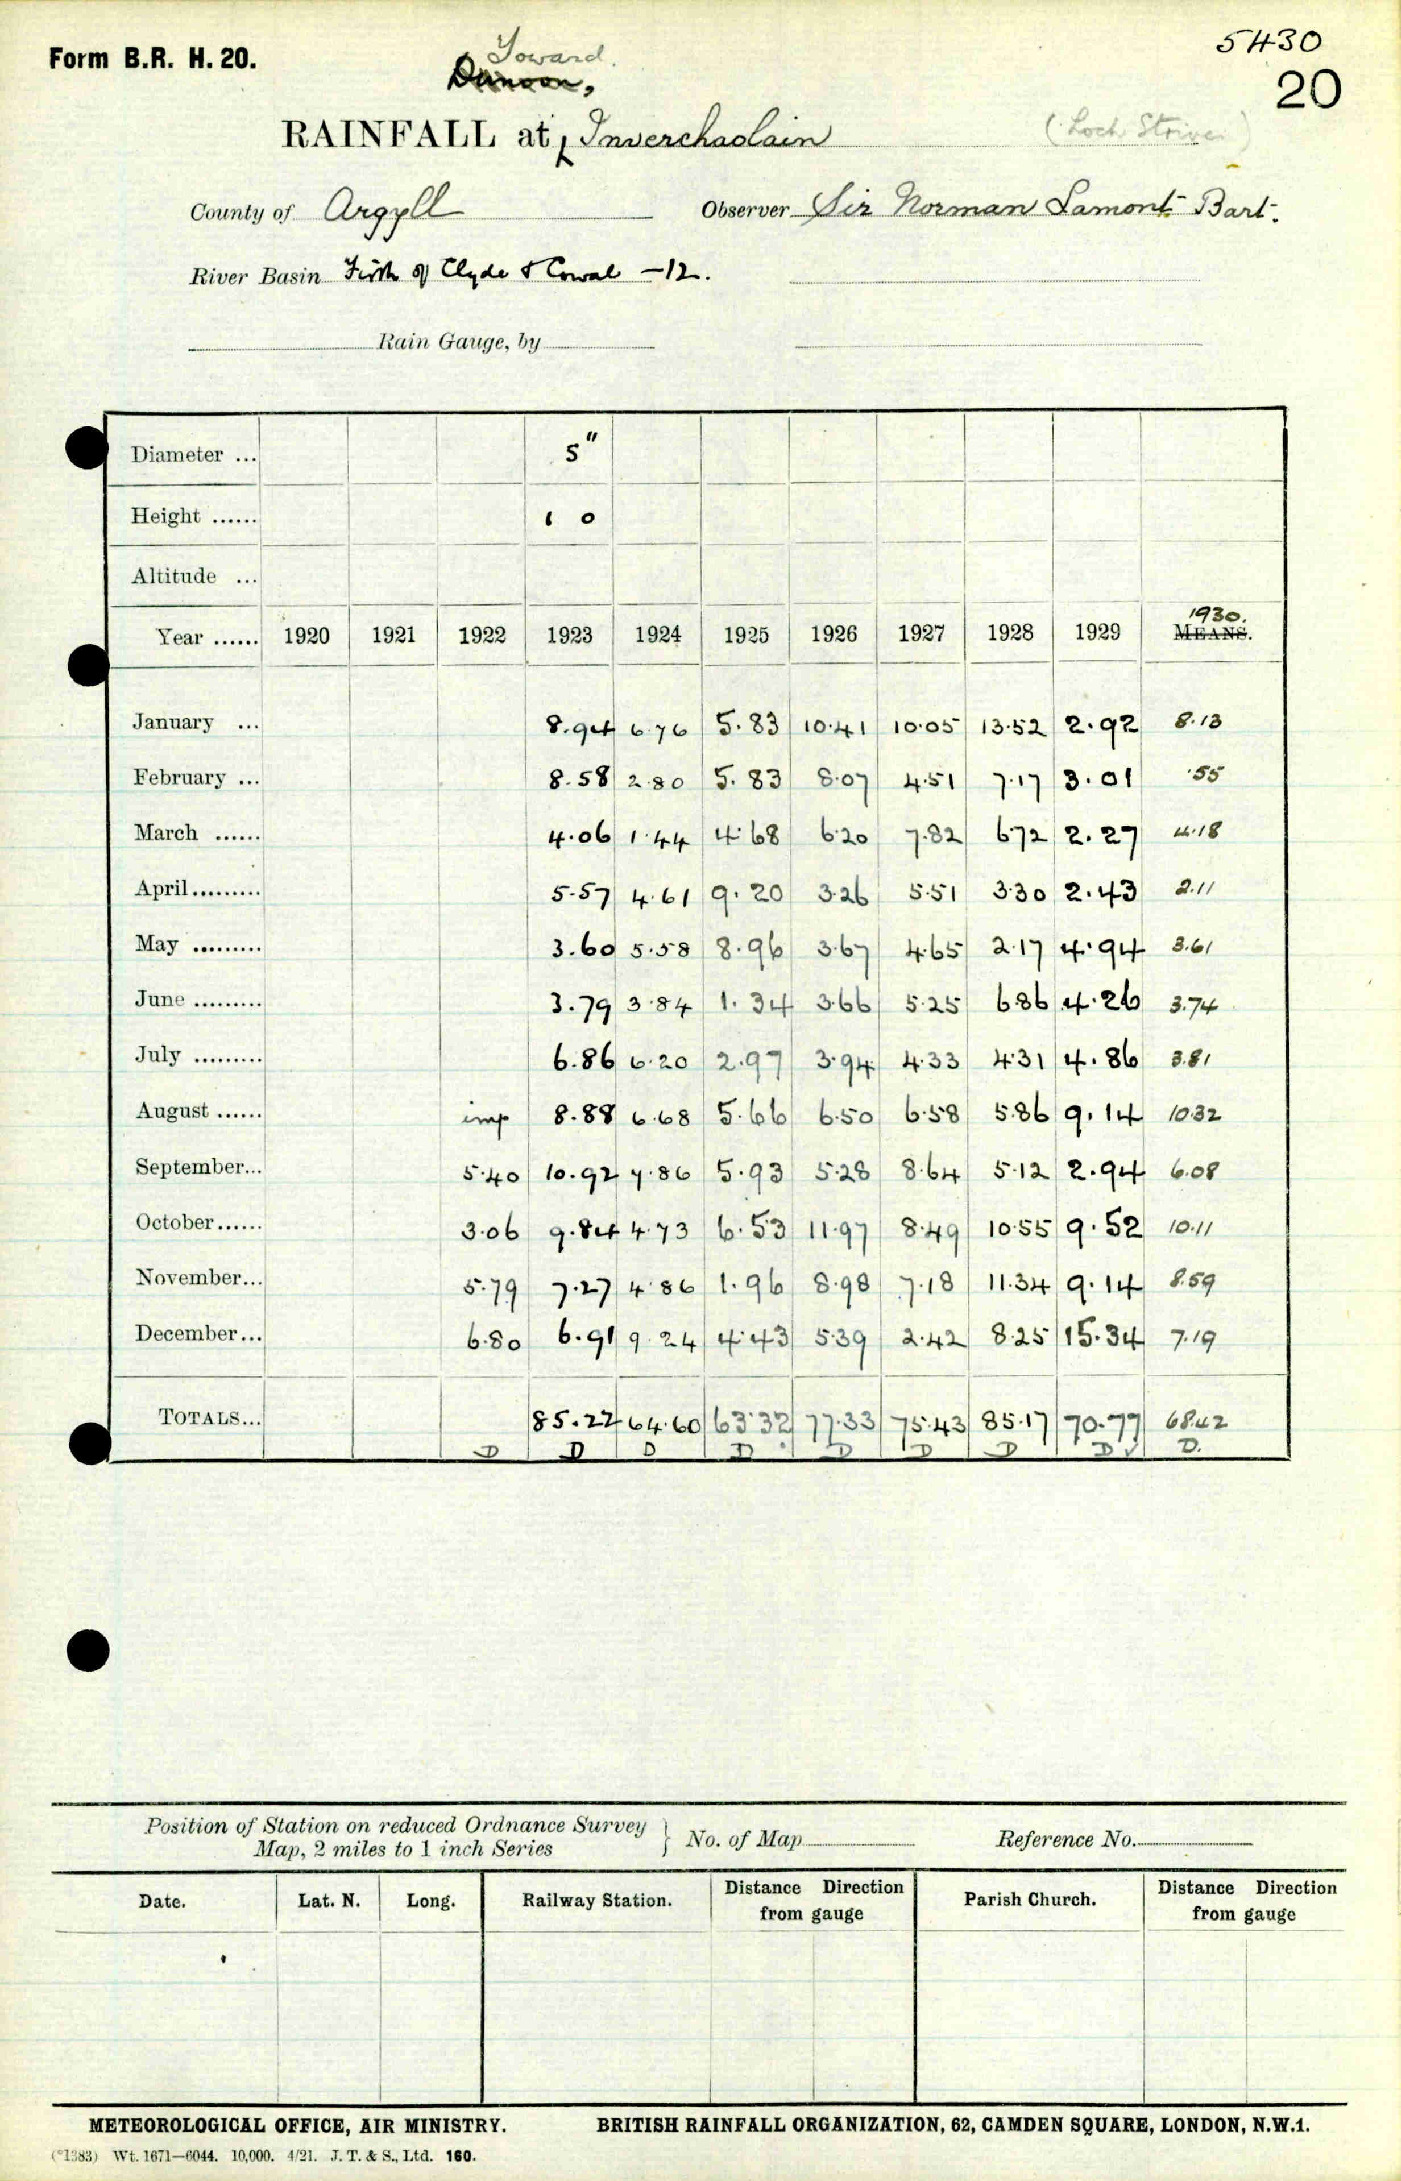 Form B.R. H. 20.
5430
20
Toward.
Dunoon,
RAINFALL at Inverchaolain (Loch Striven)
County of Argyll Observer Sir Norman Lamont Bart.
River Basin Firth of Clyde & Cowal -12.
Rain Gauge, by
Diameter ... 5"
Height ...... 1 0
Altitude ...
1930.
Year ...... 1920 1921 1922 1923 1924 1925 1926 1927 1928 1929 MEANS.
January ... 8.94 6.76 5.83 10.41 10.05 13.52 2.92 8.13
February ... 8.58 2.80 5.83 8.07 4.51 7.17 3.01 .55
March ...... 4.06 1.44 4.68 6.20 7.82 6.72 2.27 4.18
April......... 5.57 4.61 9.20 3.26 5.51 3.30 2.43 2.11
May ......... 3.60 5.58 8.96 3.67 4.65 2.17 4.94 3.61
June ......... 3.79 3.84 1.34 3.66 5.25 6.86 4.26 3.74
July ......... 6.86 6.20 2.97 3.94 4.33 4.31 4.86 3.81
August ...... imp 8.88 6.68 5.66 6.50 6.58 5.86 9.14 10.32
September... 5.40 10.92 7.86 5.93 5.28 8.64 5.12 2.94 6.08
October...... 3.06 9.84 4.73 6.53 11.97 8.49 10.55 9.52 10.11
November... 5.79 7.27 4.86 1.96 8.98 7.18 11.34 9.14 8.59
December... 6.80 6.91 9.24 4.43 5.39 2.42 8.25 15.34 7.19
TOTALS... 85.22 64.60 63.32 77.33 75.43 85.17 70.77 68.42
D D D D D D D D ✓ D.
Position of Station on reduced Ordnance Survey
Map, 2 miles to 1 inch Series } No. of Map Reference No.
Date. Lat. N. Long. Railway Station. Distance Direction from gauge Parish Church. Distance Direction from gauge
METEOROLOGICAL OFFICE, AIR MINISTRY. BRITISH RAINFALL ORGANIZATION, 62, CAMDEN SQUARE, LONDON, N.W.1.
(*1383) Wt. 1671—6044. 10,000. 4/21. J. T. & S., Ltd. 160.